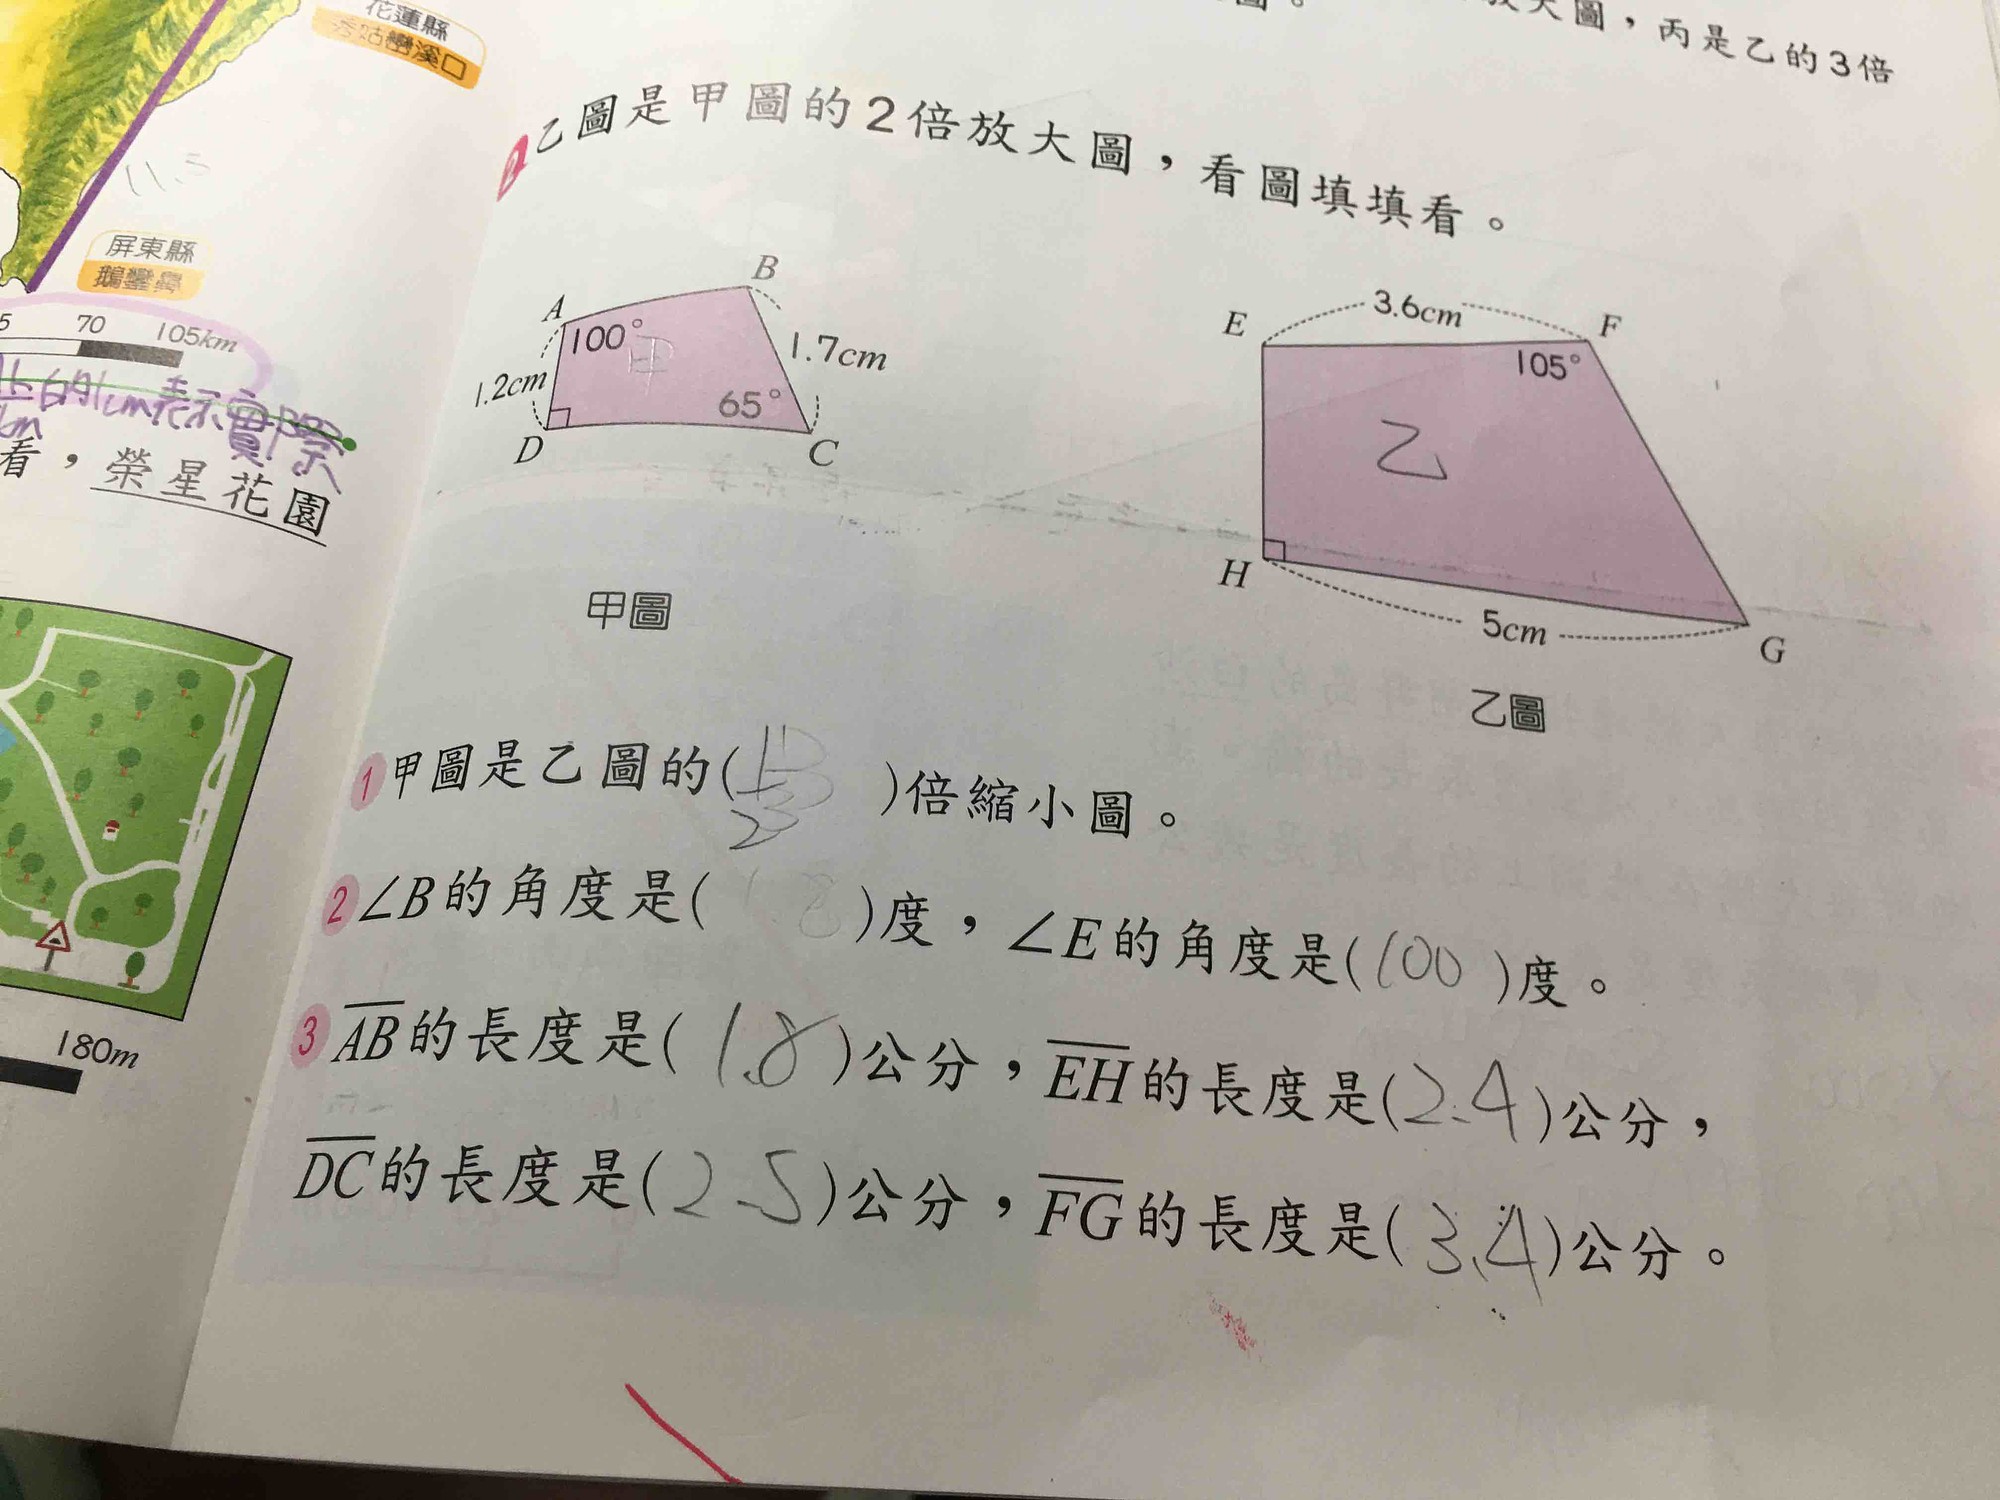 花蓮縣
秀姑巒溪口
屏東縣
鵝鑾鼻
70 105km
表示實際
看，榮星花園
180m
放大圖，丙是乙的3倍
乙圖是甲圖的2倍放大圖，看圖填填看。
A
B
100°
甲
1.7cm
1.2cm
65°
D
C
甲圖
E
3.6cm
F
105°
乙
H
5cm
G
乙圖
1 甲圖是乙圖的( )倍縮小圖。
2 ∠B的角度是( )度，∠E的角度是(100)度。
3 AB的長度是(1.8)公分，EH的長度是(2.4)公分，
DC的長度是(2.5)公分，FG的長度是(3.4)公分。